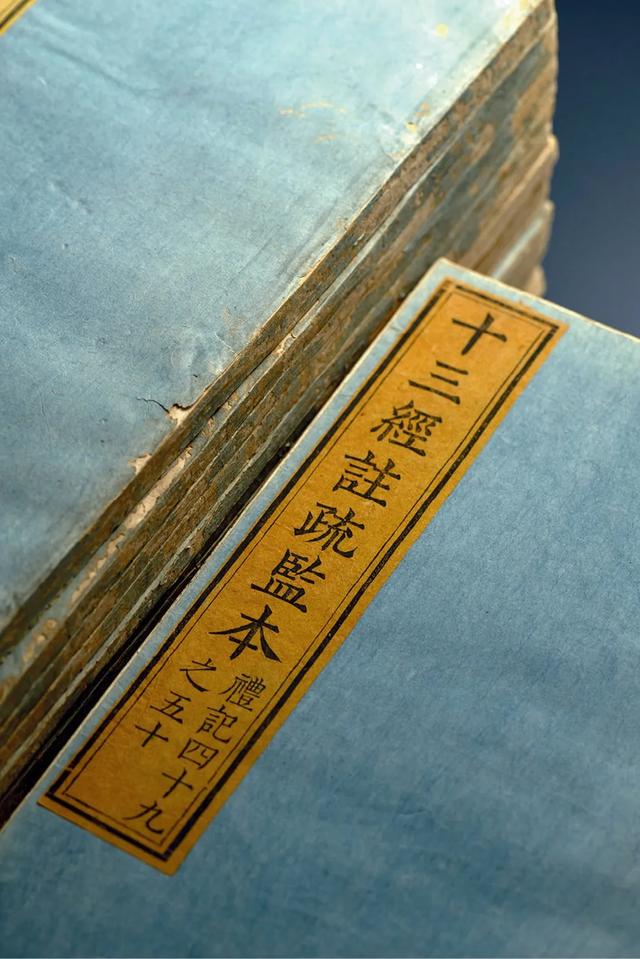 十三經註疏監本
禮記四十九
之五十